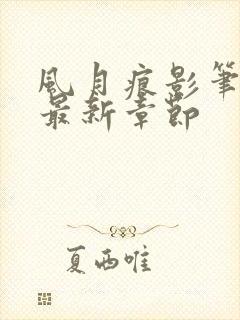 風月痕影筆
最新章節
夏西唯